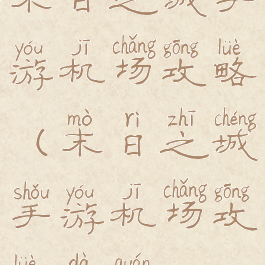 末日之城手
yóu jī chǎng gōng lüè
游机场攻略
mò rì zhī chéng
（末日之城
shǒu yóu jī chǎng gōng
手游机场攻
lüè dà quán